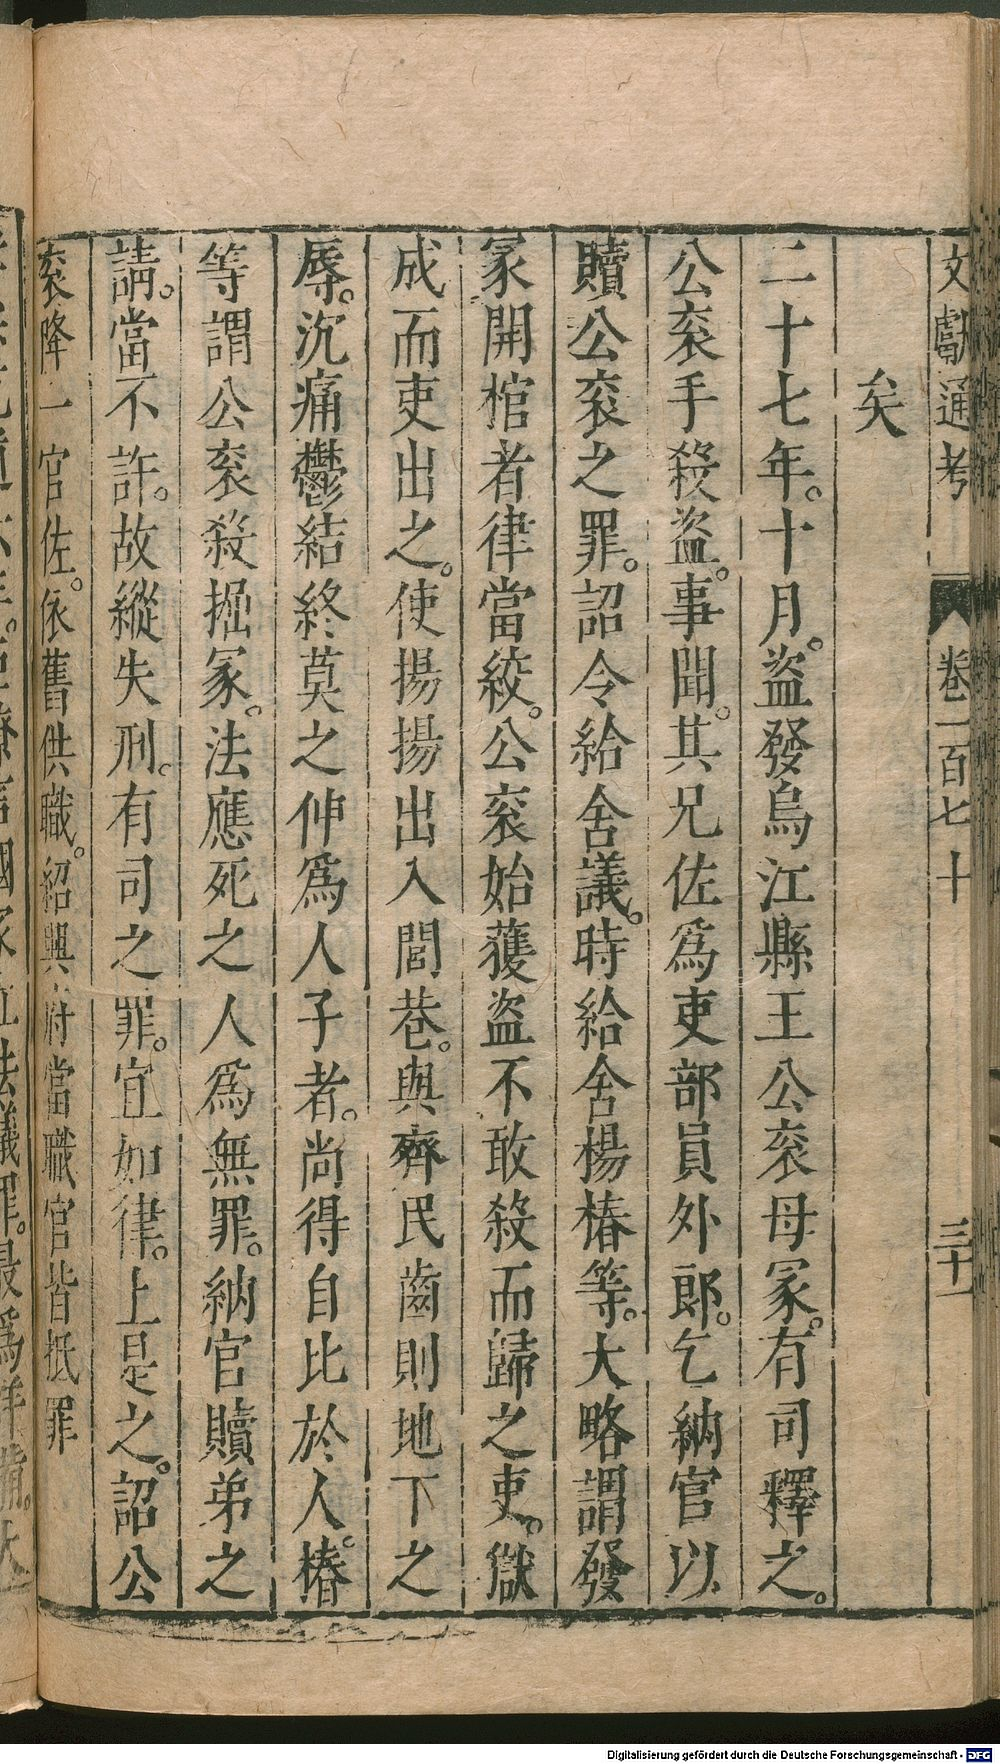 文獻通考 卷一百七十 三十一
矣
二十七年。十月。盜發烏江縣王公衮母冢。有司釋之。
公衮手殺盜。事聞。其兄佐爲吏部員外郎。乞納官以
贖公衮之罪。詔令給舍議。時給舍楊椿等。大略謂發
冢開棺者律當絞。公衮始獲盜不敢殺而歸之吏。獄
成而吏出之。使揚揚出入閭巷。與齊民齒則地下之
辱。沉痛鬱結終莫之伸爲人子者。尚得自比於人。椿
等謂公衮殺掘冢。法應死之人爲無罪。納官贖弟之
請。當不許。故縱失刑。有司之罪。宜如律。上是之。詔公
衮降一官佐。依舊供職。紹興府當職官皆抵罪
Digitalisierung gefördert durch die Deutsche Forschungsgemeinschaft - DFG